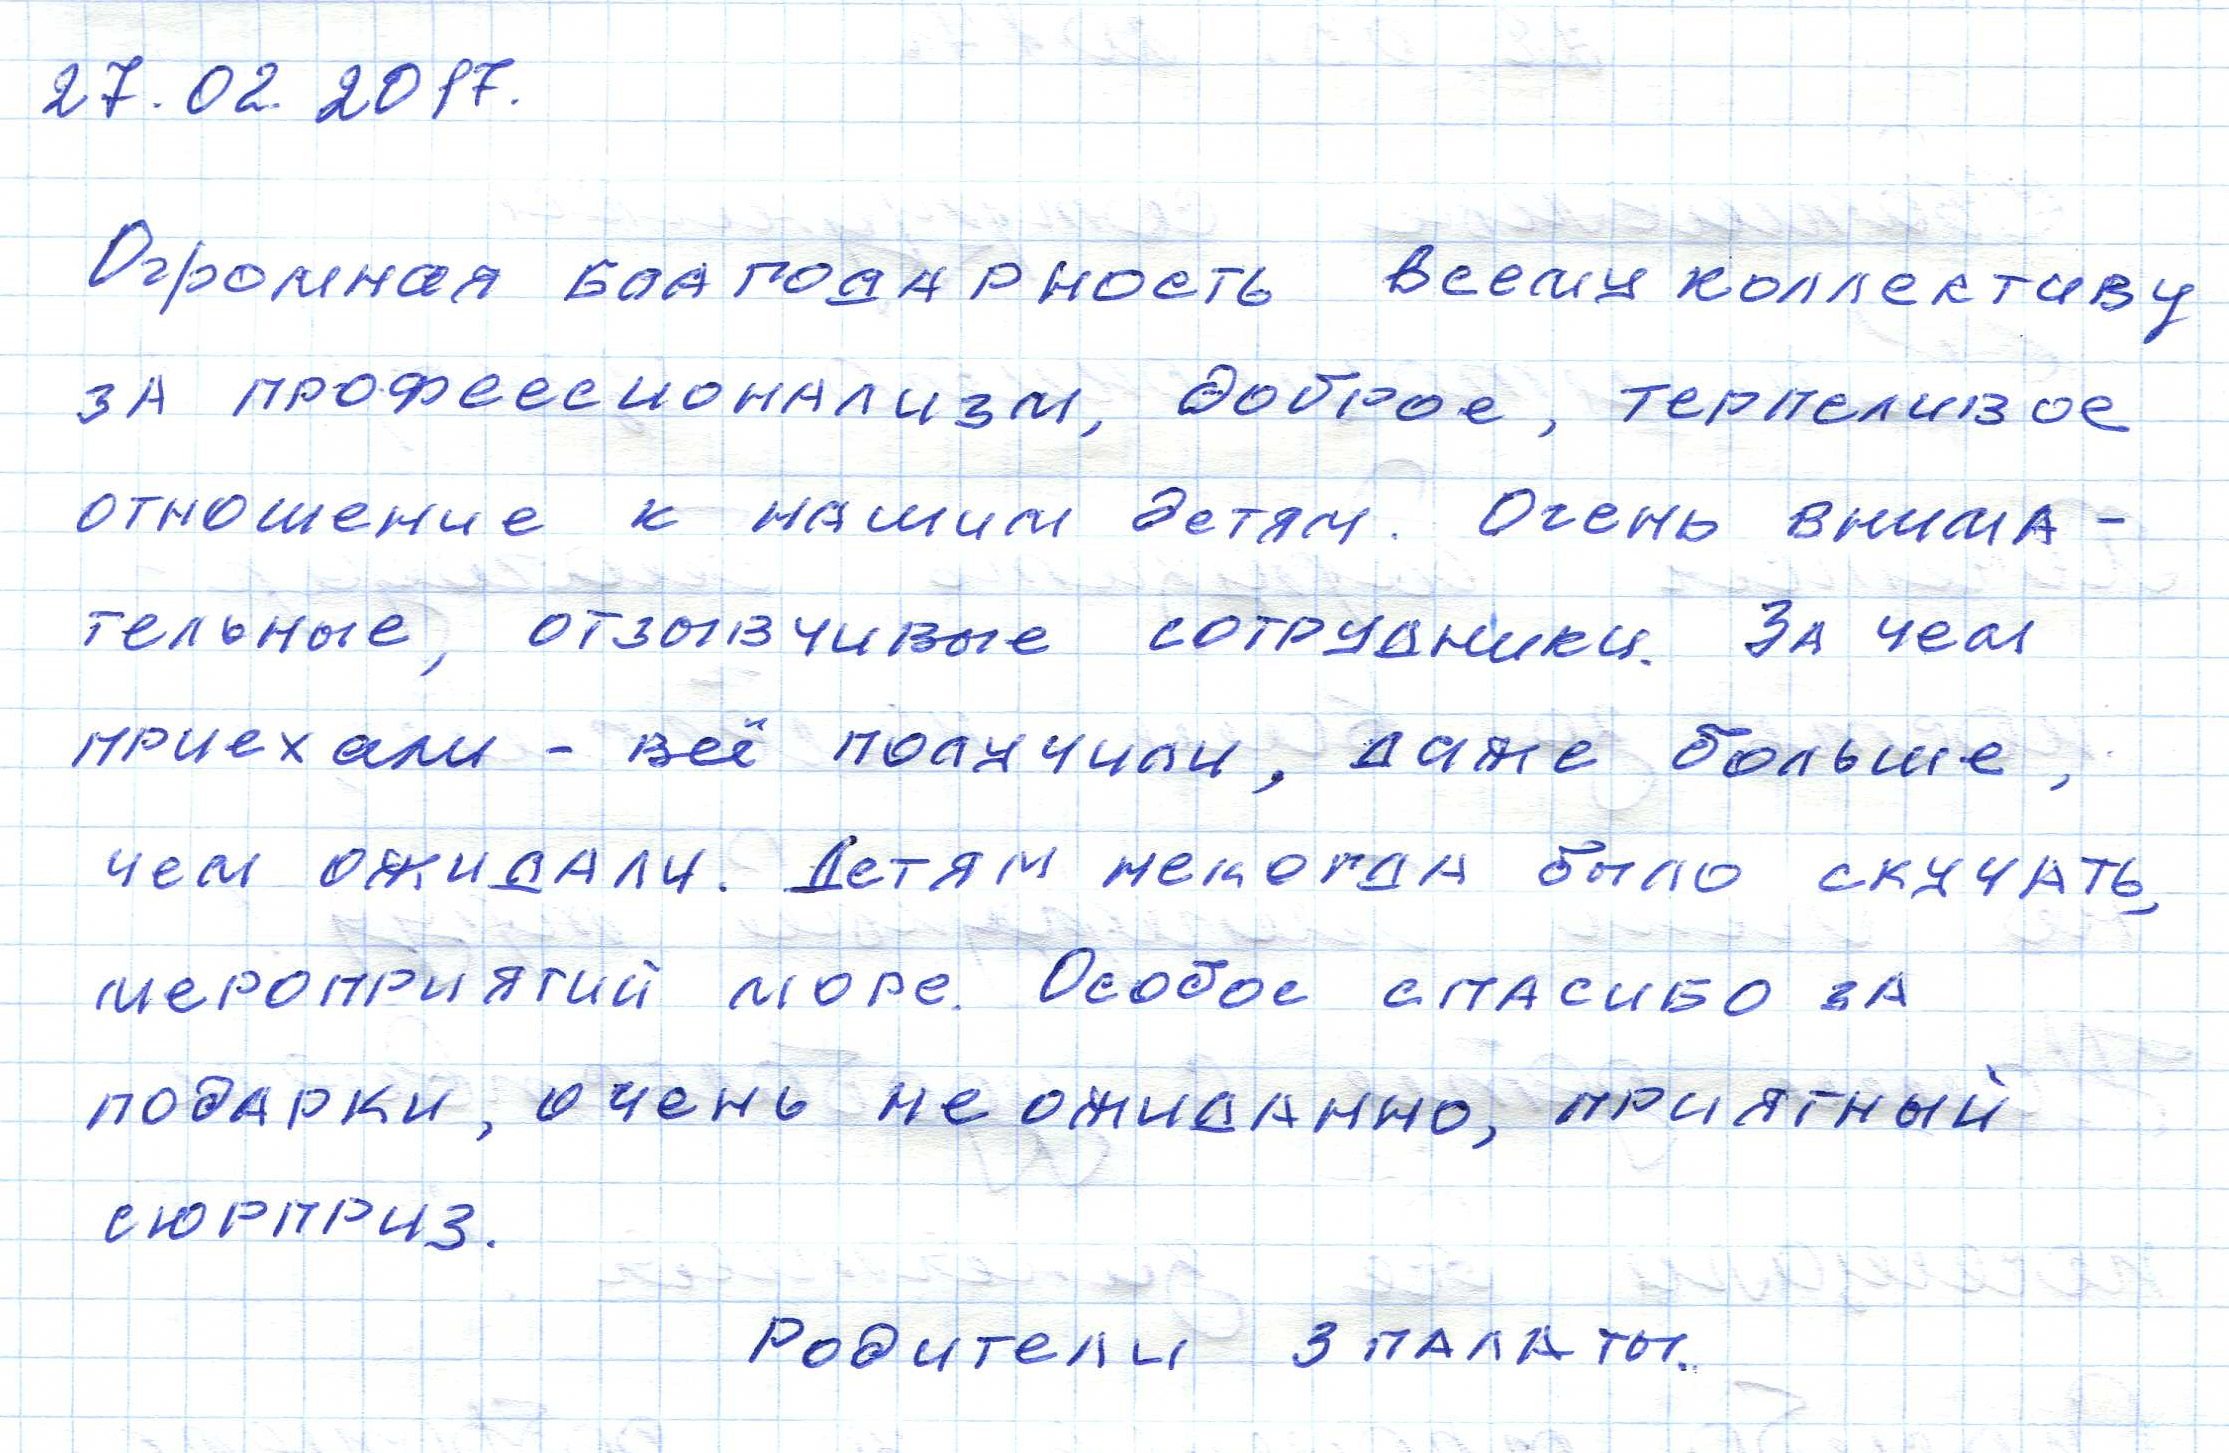 27.02.2017.
Огромная благодарность всему коллективу
за профессионализм, доброе, терпеливое
отношение к нашим детям. Очень внима-
тельные, отзывчивые сотрудники. За чем
приехали - всё получили, даже больше,
чем ожидали. Детям некогда было скучать,
мероприятий море. Особое спасибо за
подарки, очень не ожиданно, приятный
сюрприз.
Родители 3 палаты.